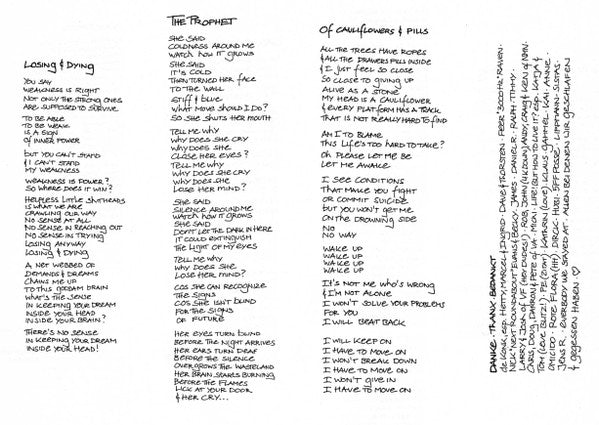 LOSING & DYING
YOU SAY
WEAKNESS IS RIGHT
NOT ONLY THE STRONG ONES
ARE SUPPOSED TO SURVIVE.
TO BE ABLE
TO BE WEAK
IS A SIGN
OF INNER POWER
BUT YOU CAN'T STAND
& I CAN'T STAND
MY WEAKNESS
WEAKNESS IS POWER?
SO WHERE DOES IT WIN?
HELPLESS LITTLE SHITHEADS
IS WHAT WE ARE
CRAWLING OUR WAY
NO SENSE AT ALL
NO SENSE IN REACHING OUT
NO SENSE IN TRYING
LOSING ANYWAY
LOSING & DYING
A NET WEBBED OF
DEMANDS & DREAMS
CHAWS ME UP
TO THIS GODDAM BRAIN
WHAT'S THE SENSE
IN KEEPING YOUR DREAM
INSIDE YOUR HEAD
INSIDE YOUR BRAIN?
THERE'S NO SENSE
IN KEEPING YOUR DREAM
INSIDE YOUR HEAD!
THE PROPHET
SHE SAID
COLDNESS AROUND ME
WATCH HOW IT GROWS
SHE SAID
IT'S COLD
THEN TURNED HER FACE
TO THE WALL
STIFF & BLUE
WHAT MOVE SHOULD I DO?
SO SHE SHUTS HER MOUTH
TELL ME WHY
WHY DOES SHE CRY
WHY DOES SHE
CLOSE HER EYES?
TELL ME WHY
WHY DOES SHE CRY
WHY DOES SHE
LOSE HER MIND?
SHE SAID
SILENCE AROUND ME
WATCH HOW IT GROWS
SHE SAID
DON'T LET THE DARK IN HERE
IT COULD EXTINGUISH
THE LIGHT OF MY EYES
TELL ME WHY
WHY DOES SHE
LOSE HER MIND?
COS SHE CAN RECOGNIZE
THE SIGNS
COS SHE ISN'T BLIND
FOR THE SIGNS
OF FUTURE
HER EYES TURN BLIND
BEFORE THE NIGHT ARRIVES
HER EARS TURN DEAF
BEFORE THE SILENCE
OVERGROWS THE WASTELAND
HER BRAIN STARTS BURNING
BEFORE THE FLAMES
LICK AT YOUR DOOR
& HER CRY...
OF CAULIFLOWERS & PILLS
ALL THE TREES HAVE ROPES
& ALL THE DRAWERS PILLS INSIDE
& I JUST FEEL SO CLOSE
SO CLOSE TO GIVING UP
ALIVE AS A STONE
MY HEAD IS A CAULIFLOWER
& EVERY PLATFORM HAS A TRACK
THAT IS NOT REALLY HARD TO FIND
AM I TO BLAME
THIS LIFE'S TOO HARD TO TAKE?
OH PLEASE LET ME BE
LET ME AWAKE
I SEE CONDITIONS
THAT MAKE YOU FIGHT
OR COMMIT SUICIDE
BUT YOU WON'T GET ME
ON THE DROWNING SIDE
NO
NO WAY
WAKE UP
WAKE UP
WAKE UP
WAKE UP
IT'S NOT ME WHO'S WRONG
& I'M NOT ALONE
I WON'T SOLVE YOUR PROBLEMS
FOR YOU
I WILL BEAT BACK
I WILL KEEP ON
I HAVE TO MOVE ON
I WON'T BREAK DOWN
I HAVE TO MOVE ON
I WON'T GIVE IN
I HAVE TO MOVE ON
DANKE · THANX · BEDANKT
HETTY, MARCEL & INGRID · DAVE & THORSTEN · PEER "SCOOTER" RAVEN ·
NICK "NEXT ROUNDABOUT" EVANS & BECKY · JAMES · DANIEL R. · RALPH · TIMMY ·
LARRY & JOSH OF VF (HEY DUDES!) · ROB, JOHN (UK DOWN) ANDY, CRAIG & KEN OF NAN ·
CHRIS, DOUG, DAHRON & PETE OF VA · MEAN · LIFE (BUT HOW TO LIVE IT?) ESP. KATJA &
TOM (LEVE BUIZL!) · PE (ZOSH) · KATHRIN (LOVE) KLAUS GÄTHJEL · KAI · ANNE ·
OMICIDO · ROTE FLORA (HH) · DIRCIC · HUBI · EFFPOSSE · LIPPMANN · SISTAS ·
JENS R. · EVERBODY WE STAYED AT · ALLEN BEI DENEN WIR GESCHLAFEN
& GEGESSEN HABEN ♡